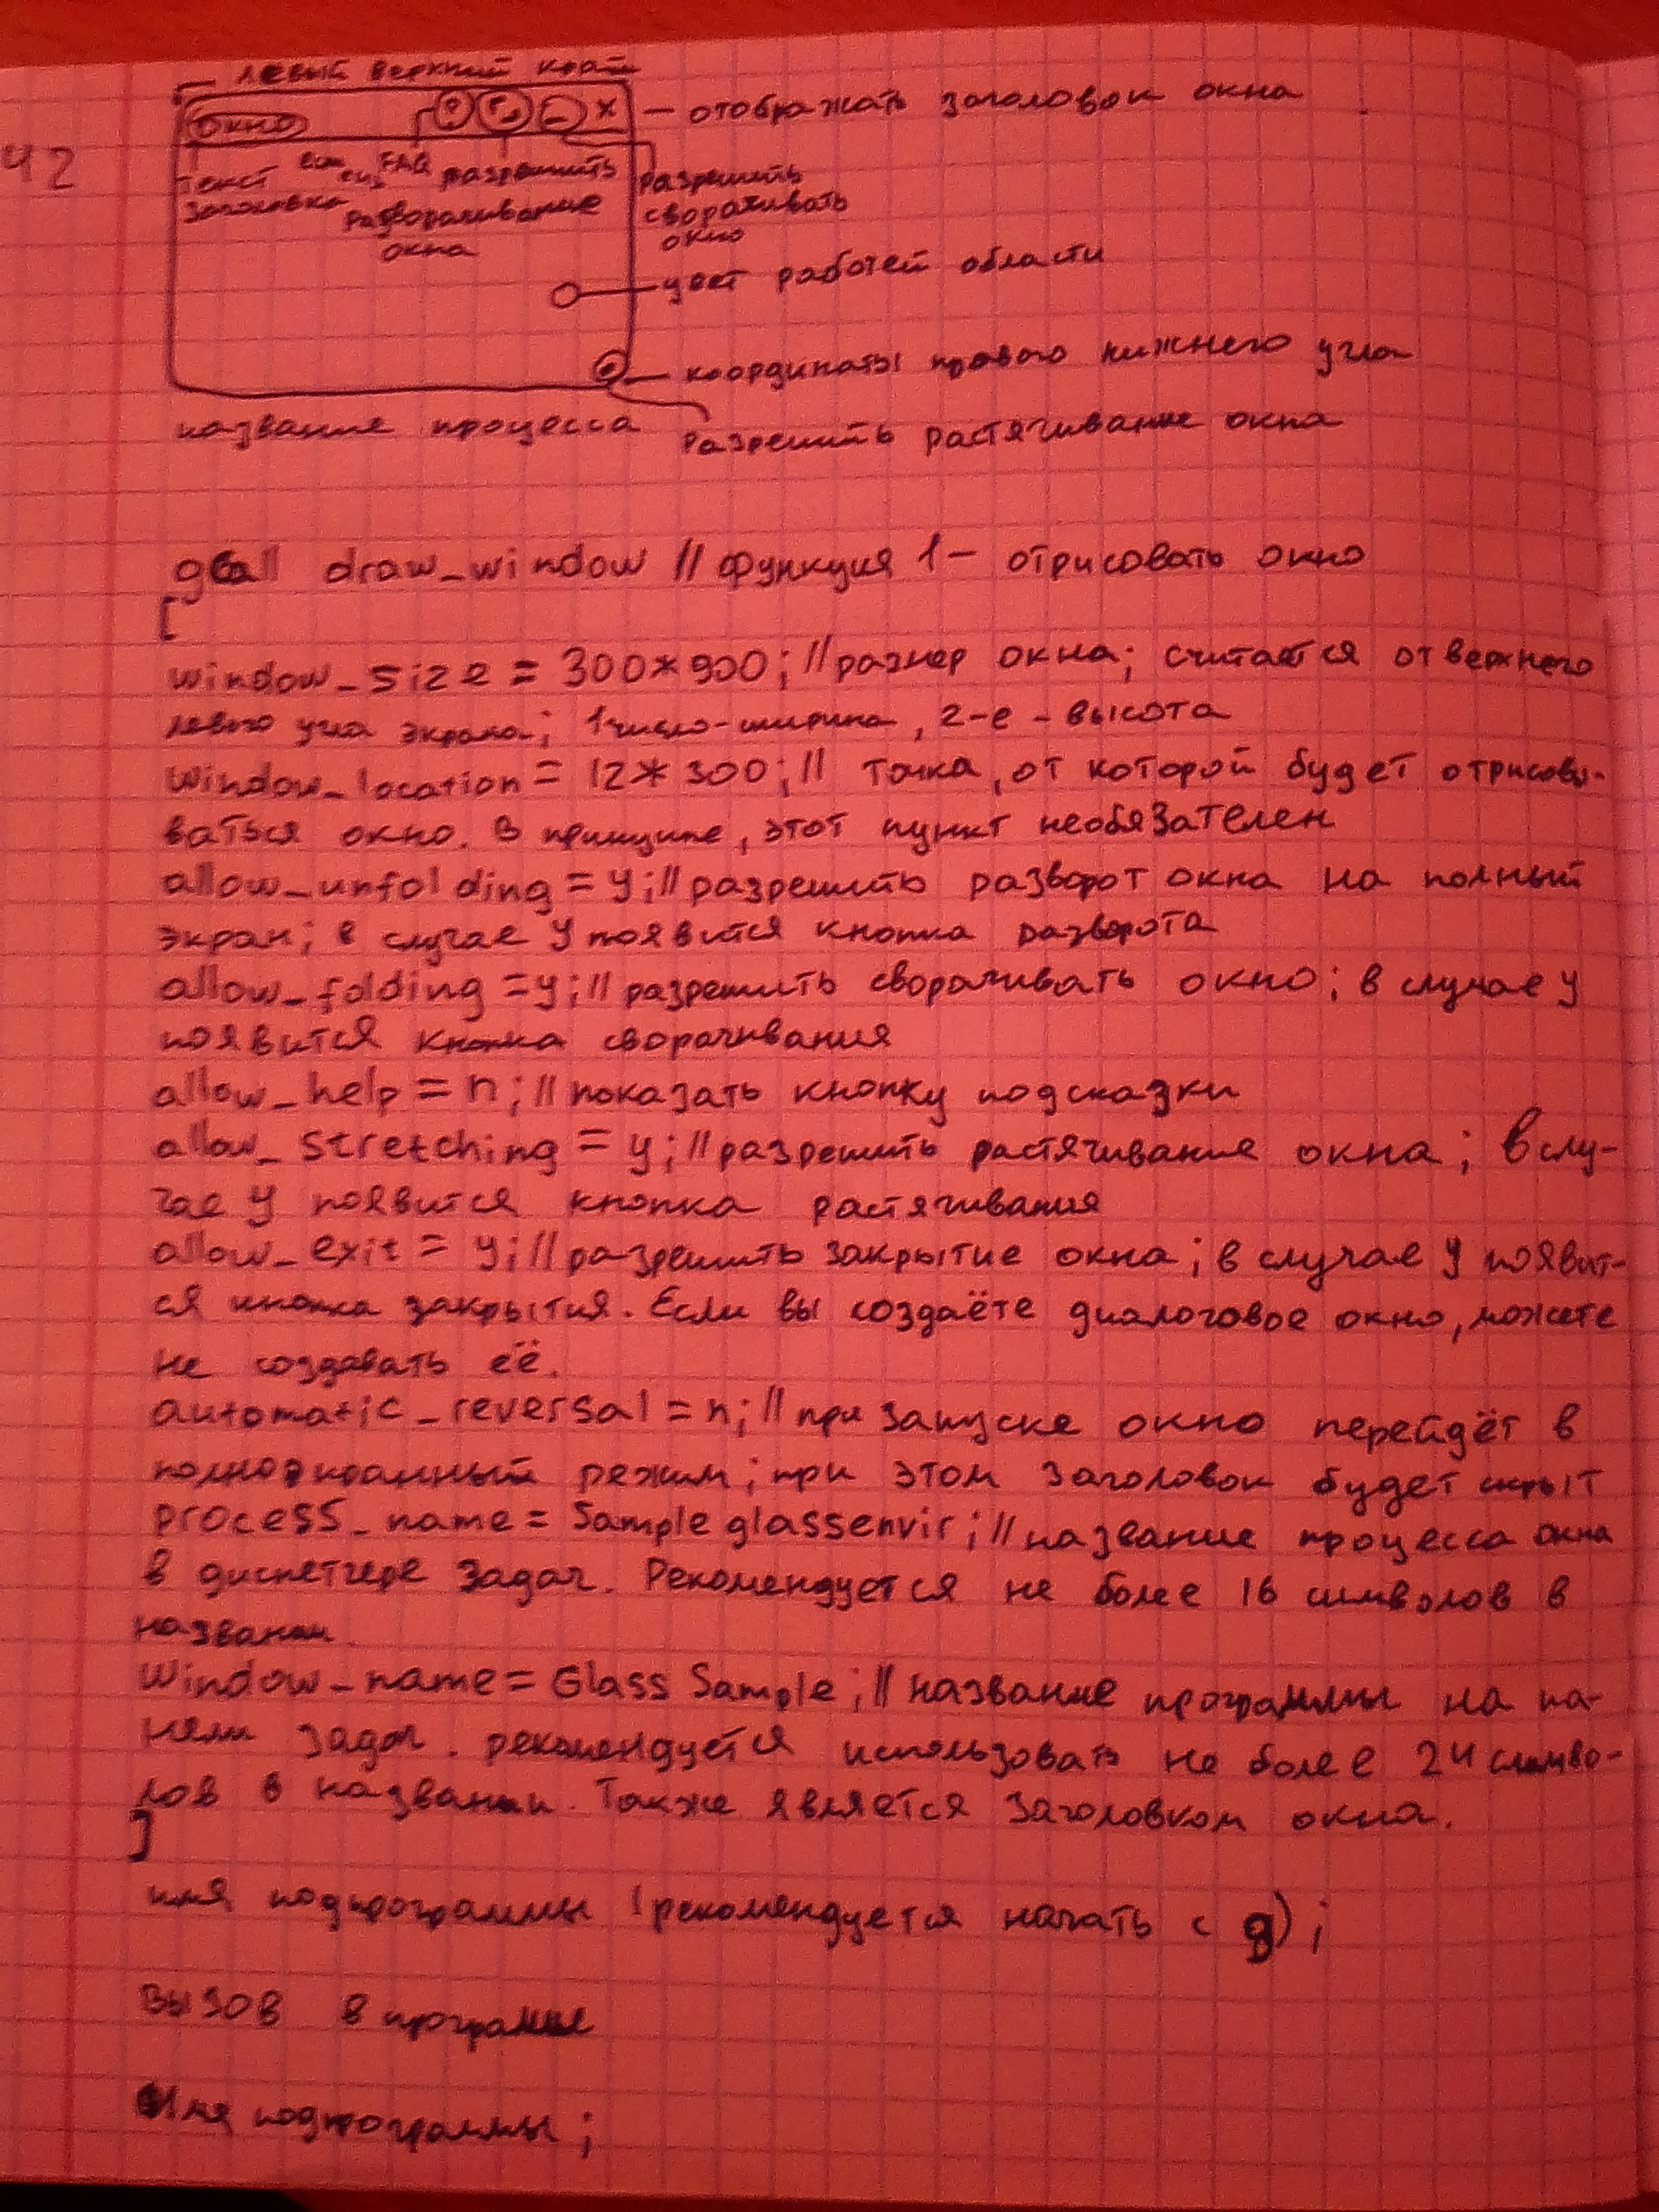 левый верхний край
окно ? _ x — отображать заголовок окна
42
текст FAQ разрешить разрешить
заголовка разворачивание сворачивать
окна окно
цвет рабочей области
координаты правого нижнего угла
название процесса разрешить растягивание окна
gcall draw_window // функция 1 — отрисовать окно
[
window_size = 300*900; // размер окна; считается от верхнего
левого угла экрана; 1 число - ширина, 2-е - высота
Window_location = 12*300; // точка, от которой будет отрисовы-
ваться окно. В принципе, этот пункт необязателен
allow_unfolding = y; // разрешить разворот окна на полный
экран; в случае y появится кнопка разворота
allow_folding = y; // разрешить сворачивать окно; в случае y
появится кнопка сворачивания
allow_help = n; // показать кнопку подсказки
allow_stretching = y; // разрешить растягивание окна; в слу-
чае y появится кнопка растягивания
allow_exit = y; // разрешить закрытие окна; в случае y появит-
ся кнопка закрытия. Если вы создаёте диалоговое окно, можете
не создавать её.
automatic_reversal = n; // при запуске окно перейдёт в
полноэкранный режим; при этом заголовок будет скрыт
process_name = Sample glassenvir; // название процесса окна
в диспетчере задач. Рекомендуется не более 16 символов в
названии.
Window_name = Glass Sample; // название программы на па-
нели задач. рекомендуется использовать не более 24 симво-
лов в названии. Также является заголовком окна.
]
имя подпрограммы (рекомендуется начать с g);
вызов в программе
Имя подпрограммы;